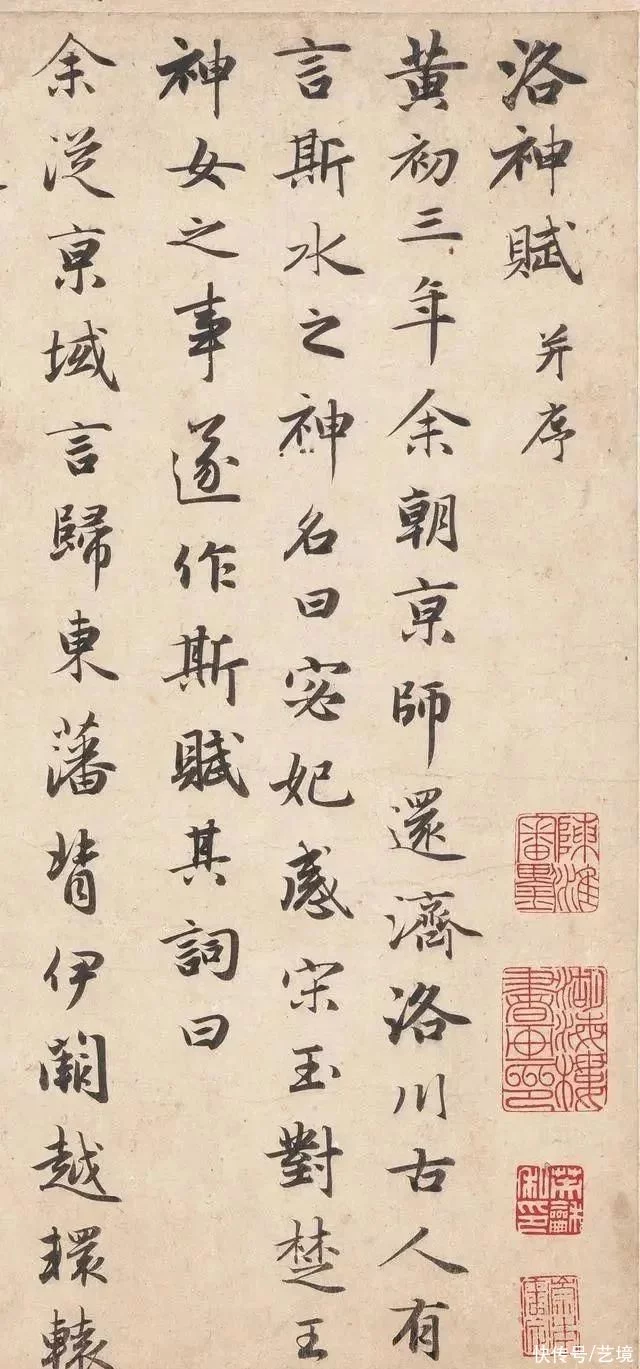 洛神賦 并序
黄初三年余朝京師還濟洛川古人有
言斯水之神名曰宓妃感宋玉對楚王
神女之事遂作斯賦其詞曰
余從京域言歸東藩背伊闕越轘轅
陳淮
審墨
湖海樓
書画印
快传号/艺境